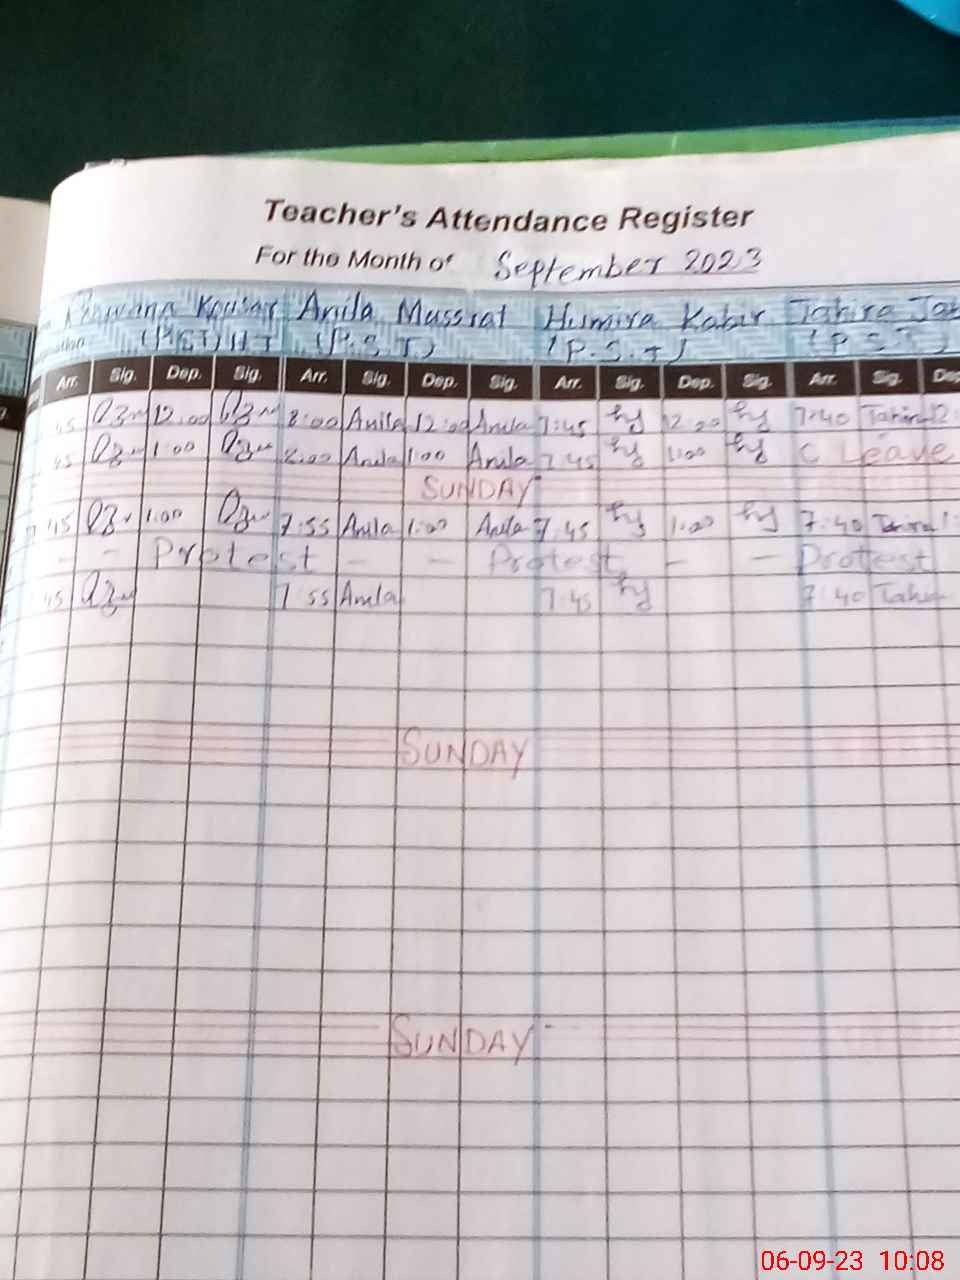 Teacher's Attendance Register
For the Month of September 2023
Kousar Anila Mussrat Humira Kabir Tahira
(P.S.T) H T (P.S.T) (P.S.T) (P S T)
Arr. Sig. Dep. Sig. Arr. Sig. Dep. Sig. Arr. Sig. Dep. Sig. Arr. Sig. Dep
45 12:00 8:00 Anila 12:00 Anila 7:45 hy 12:00 hy 7:40 Tahira 12:
45 1:00 8:00 Anila 1:00 Anila 7:45 hy 1:00 hy C. Leave
SUNDAY
7:45 1:00 7:55 Anila 1:00 Anila 7:45 hy 1:00 hy 7:40 Tahira 1:
- - Protest - - Protest - - Protest
45 7:55 Anila 7:45 hy 7:40 Tahir
SUNDAY
SUNDAY
06-09-23 10:08